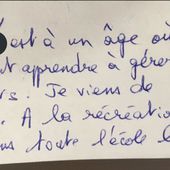 est à un âge où
apprendre à gérer
. Je viens de
. A la récréation
toute l'école